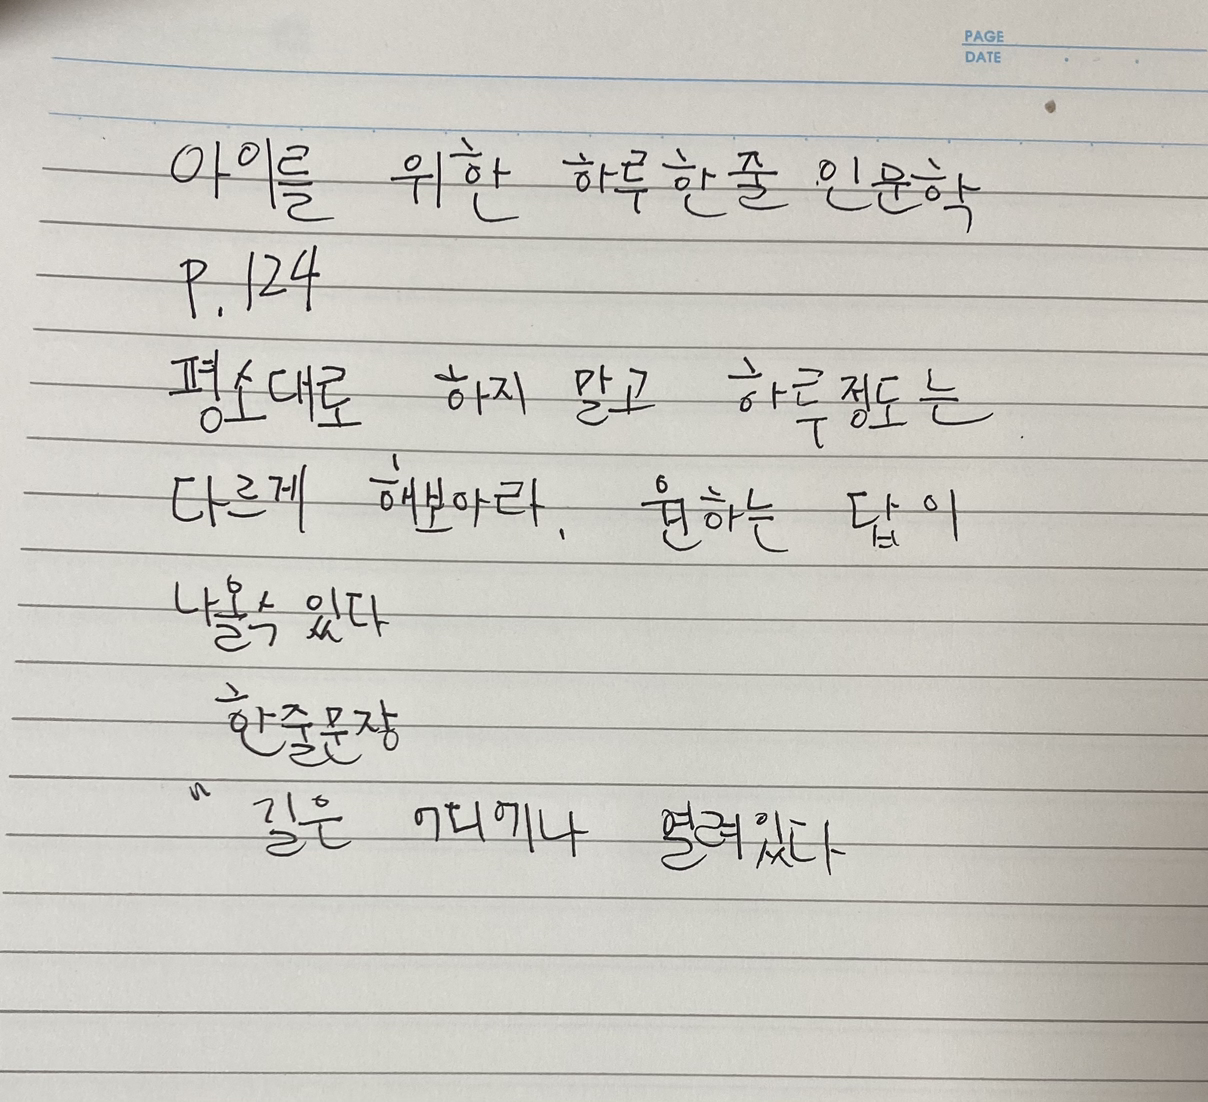 PAGE
DATE
아이를 위한 하루한줄 인문학
P.124
평소대로 하지 말고 하루정도는
다르게 해보아라. 원하는 답이
나올수 있다
한줄문장
" 길은 어디에나 열려있다